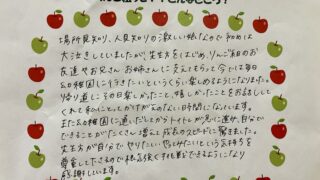 場所見知り、人見知りの激しい娘なので初めは
大泣きしていましたが、先生方をはじめ、りんご組のお
友達やお兄さんお姉さんに支えてもらって今では毎日
幼稚園に行きたい!というくらい楽しめるようになりました。
帰り道にその日楽しかったこと、嬉しかったことをお話しして
くれて私にとってかけがえのない時間になっています。
また幼稚園に通いだしてからトイトレが
できることがたくさん増えて成長のスピードに驚きました。
先生方が自分でやりたい、やってみたいという気持ちを
尊重して下さるので
感謝しています。